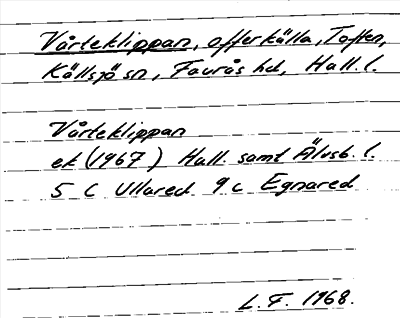 Vårteklippan, offerkälla, Toften,
Källsjö sn, Faurås hd, Hall. l.
Vårteklippan
ek (1967) Hall. samt Älvsb. l.
5 C Ullared 9 c Egnared
L. F. 1968.